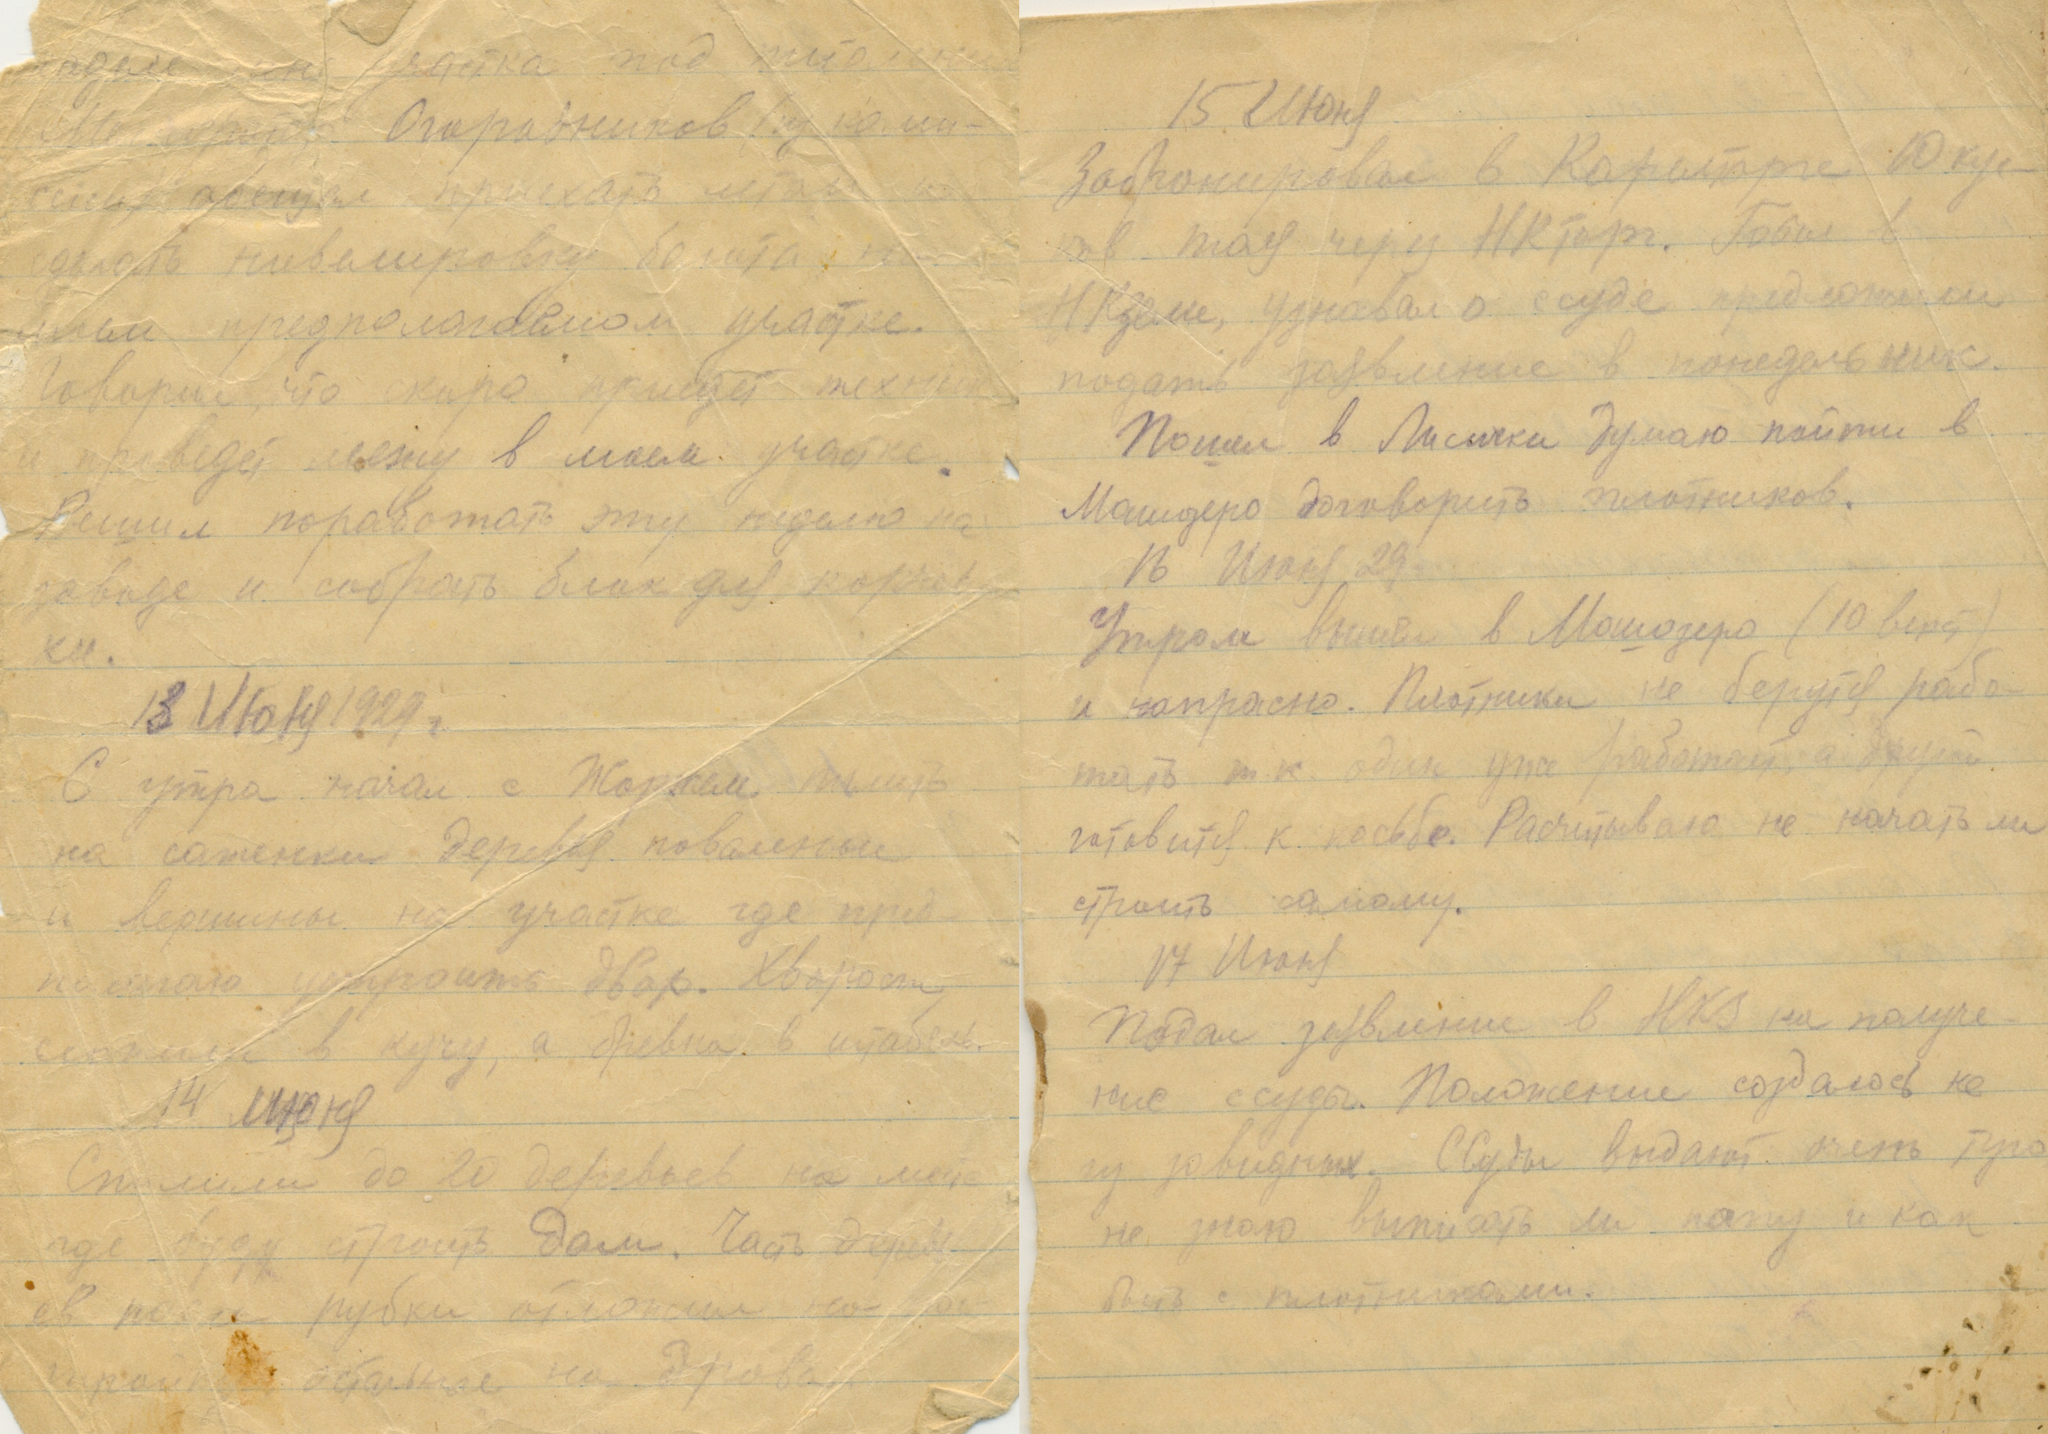 участка под
Огородников
обещал приехать летом
сделать нивелировку болота на
моем предполагаемом участке.
Говорил, что скоро приедет техник
и проведет межу в моем участке.
Решил поработать эту неделю на
заводе и собрать блок для корчев
ки.
13 Июня 1929 г.
С утра начал с Жоржем пилить
на саженки деревья поваленные
и вершины на участке где пред
полагаю устроить двор. Хворост
сложили в кучу, а бревна в штабель.
14 июня
Спилили до 20 деревьев на месте
где буду строить дом. Часть деревь
ев рубки отложил на по
стройку остальные на дрова.
15 Июня
Забронировал в Каролторге 10 кус
ков толя через НКторг. Был в
НКземе, узнавал о ссуде предложили
подать заявление в понедельник.
Пошел в Лисички думаю пойти в
Машозеро договорить плотников.
16 Июня 29
Утром вышел в Машозеро (10 верст)
и напрасно. Плотники не берутся рабо-
тать т к. один уже работает, а другой
готовится к косьбе. Расчитываю не начать ли
строить самому.
17 Июня
Подал заявление в НКЗ на получе-
ние ссуды. Положение создалось не
из завидных. Ссуды выдают очень туго
не знаю выписать ли папу и как
быть с плотниками.